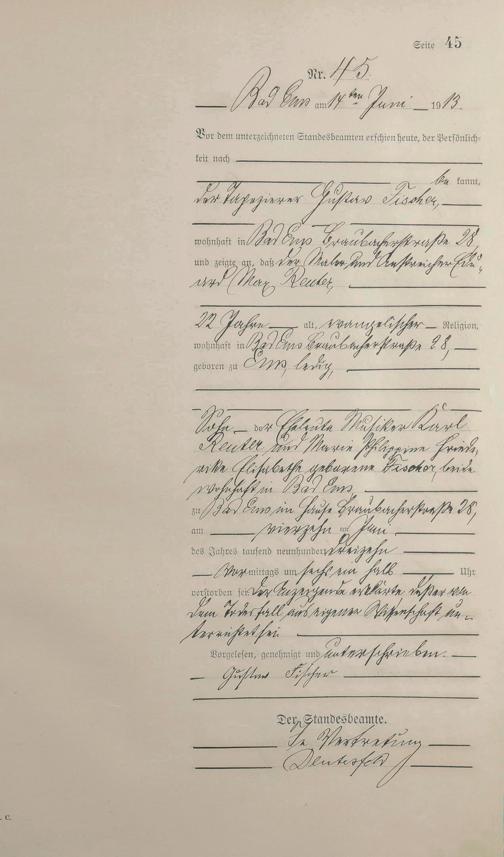 Seite 45
Nr. 45.
Bad Ems am 14ten Juni 1913.
Vor dem unterzeichneten Standesbeamten erschien heute, der Persönlich-
keit nach
be kannt,
der Tapezierer Gustav Fischer,
wohnhaft in Bad Ems Braubacherstraße 28,
und zeigte an, daß der Maler und Anstreicher Edu-
ard Max Reuter,
22 Jahre alt, evangelischer Religion,
wohnhaft in Bad Ems Braubacherstraße 28,
geboren zu Ems, ledig,
Sohn der Eheleute Musiker Karl
Reuter und Marie Philippine Friede-
rike Elisabethe geborene Fischer, beide
wohnhaft in Bad Ems,
zu Bad Ems, im Hause Braubacherstraße 28,
am vierzehn ten Juni
des Jahres tausend neunhundert dreizehn
Vormittags um sechs ein halb Uhr
verstorben sei. Der Anzeigende erklärte, daß er von
dem Todesfall aus eigener Wissenschaft un-
terrichtet sei.
Vorgelesen, genehmigt und unterschrieben.
Gustav Fischer
Der Standesbeamte.
In Vertretung
C.